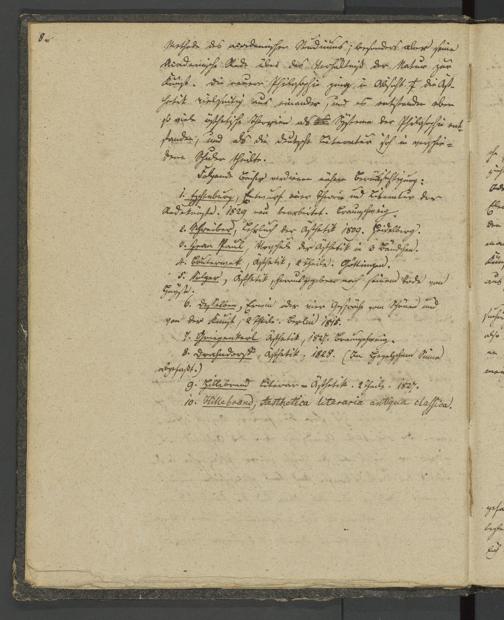 8.
Methode des academischen Studiums; besonders aber seine
Academische Rede über das Verhältniß der Natur zur
Kunst. Die neuere Philosophie ging in Absicht f. die Äst-
hetik vielseitig aus einander, und es entstanden eben
so viele ästhetische Theorien als Systeme der Philosophie ent-
standen, und als die deutsche Literatur sich in verschie-
dene Schulen theilte.
Folgende Bücher verdienen nähere Berücksichtigung:
1. Eschenburg, Entwurf einer Theorie und Literatur der
Redekünste. 1829 neu bearbeitet. Braunschweig.
2. Schreiber, Lehrbuch der Ästhetik 1809. Heidelberg.
3. Jean Paul, Vorschule der Ästhetik in 3 Bändchen.
4. Bouterwek, Ästhetik, 2 Theile. Göttingen.
5. Solger, Ästhetik, herausgegeben nach seinem Tode von
Heyse.
6. Desselben, Erwin oder vier Gespräche vom Schönen und
von der Kunst, 2 Theile. Berlin 1815.
7. Griepenkerl Ästhetik, 1827. Braunschweig.
8. Ästhetik, 1828. (Im Hegelschen Sinne
abgefaßt.)
9. Hillebrand Literar-Ästhetik. 2 Theile. 1827.
10. Hillebrand, Aesthetica literaria antiqua classica.